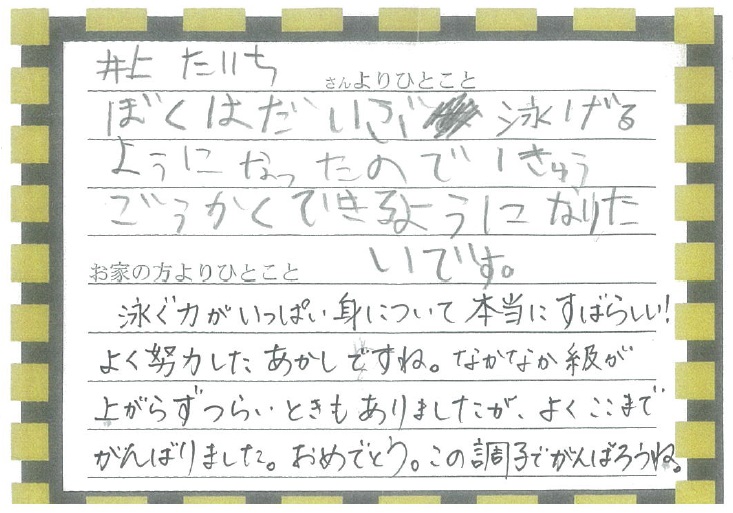 井上 たいち さんよりひとこと
ぼくはだいぶ 泳げる
ようになったので1きゅう
ごうかくできるようになりた
いです。
お家の方よりひとこと
泳ぐ力がいっぱい身について本当にすばらしい!
よく努力したあかしですね。なかなか級が
上がらずつらいときもありましたが、よくここまで
がんばりました。おめでとう。この調子でがんばろうね。